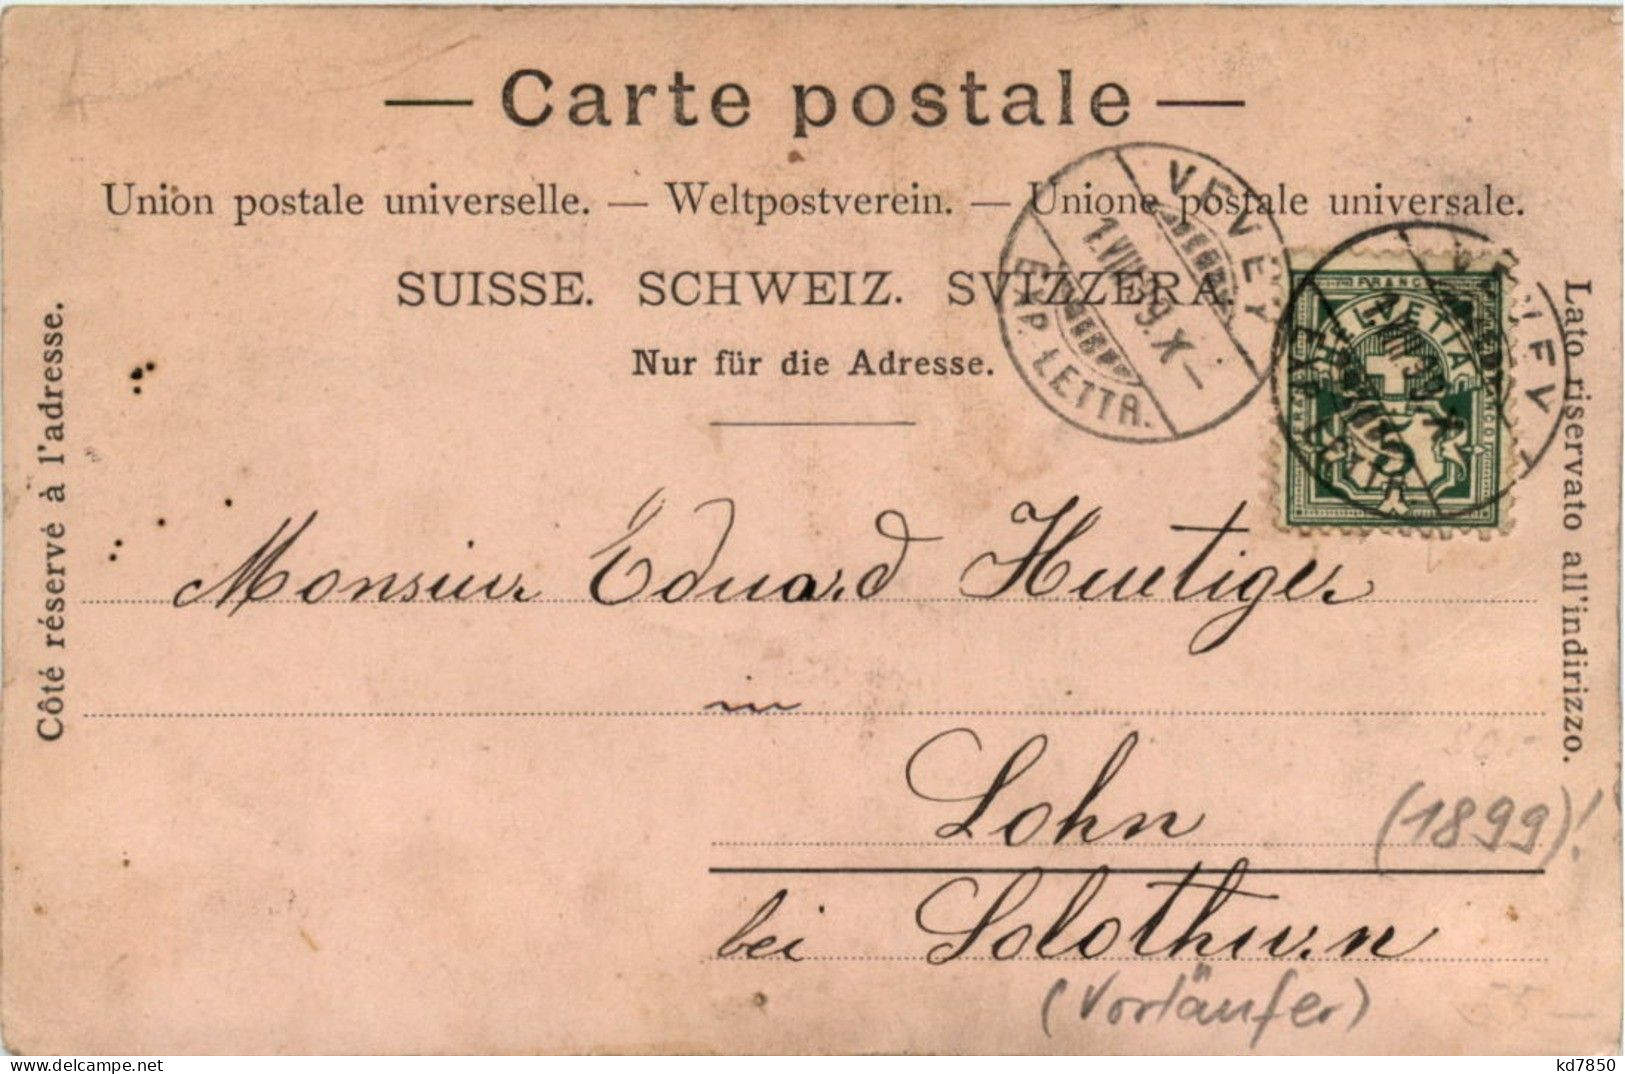 — Carte postale —
Union postale universelle. — Weltpostverein. — Unione postale universale.
SUISSE. SCHWEIZ. SVIZZERA.
Nur für die Adresse.
Côté réservé à l'adresse.
Lato riservato all'indirizzo.
VEVEY
1.VIII.99.X—
EXP. LETTR.
FRANCO
HELVETIA
5
VEVEY
EXP. LETTR.
Monsieur Eduard Huetiger
in
Lohn
(1899)!
bei Solothurn
(Vorläufer)
kd7850